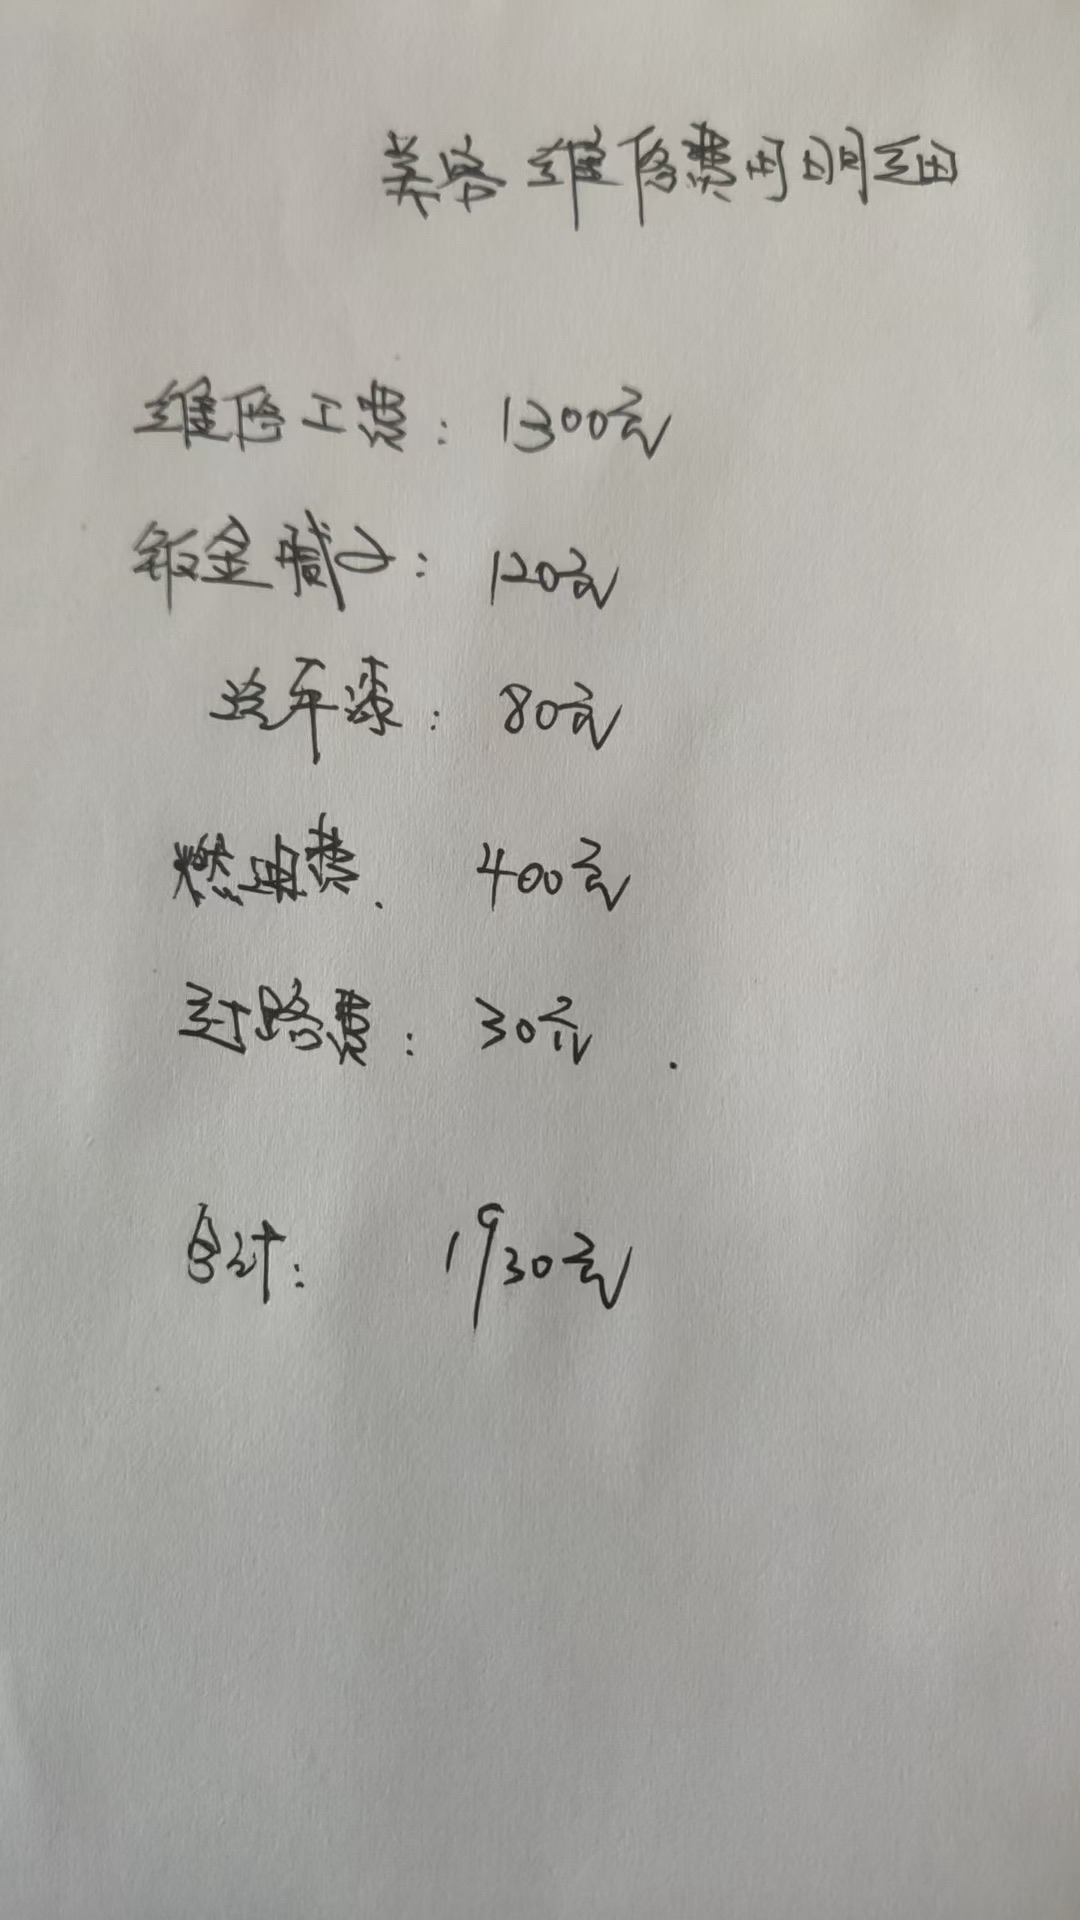 美路维修费用明细
维修工费：1300元
钣金腻子：120元
汽车漆：80元
燃油费. 400元
过路费：30元.
合计：1930元